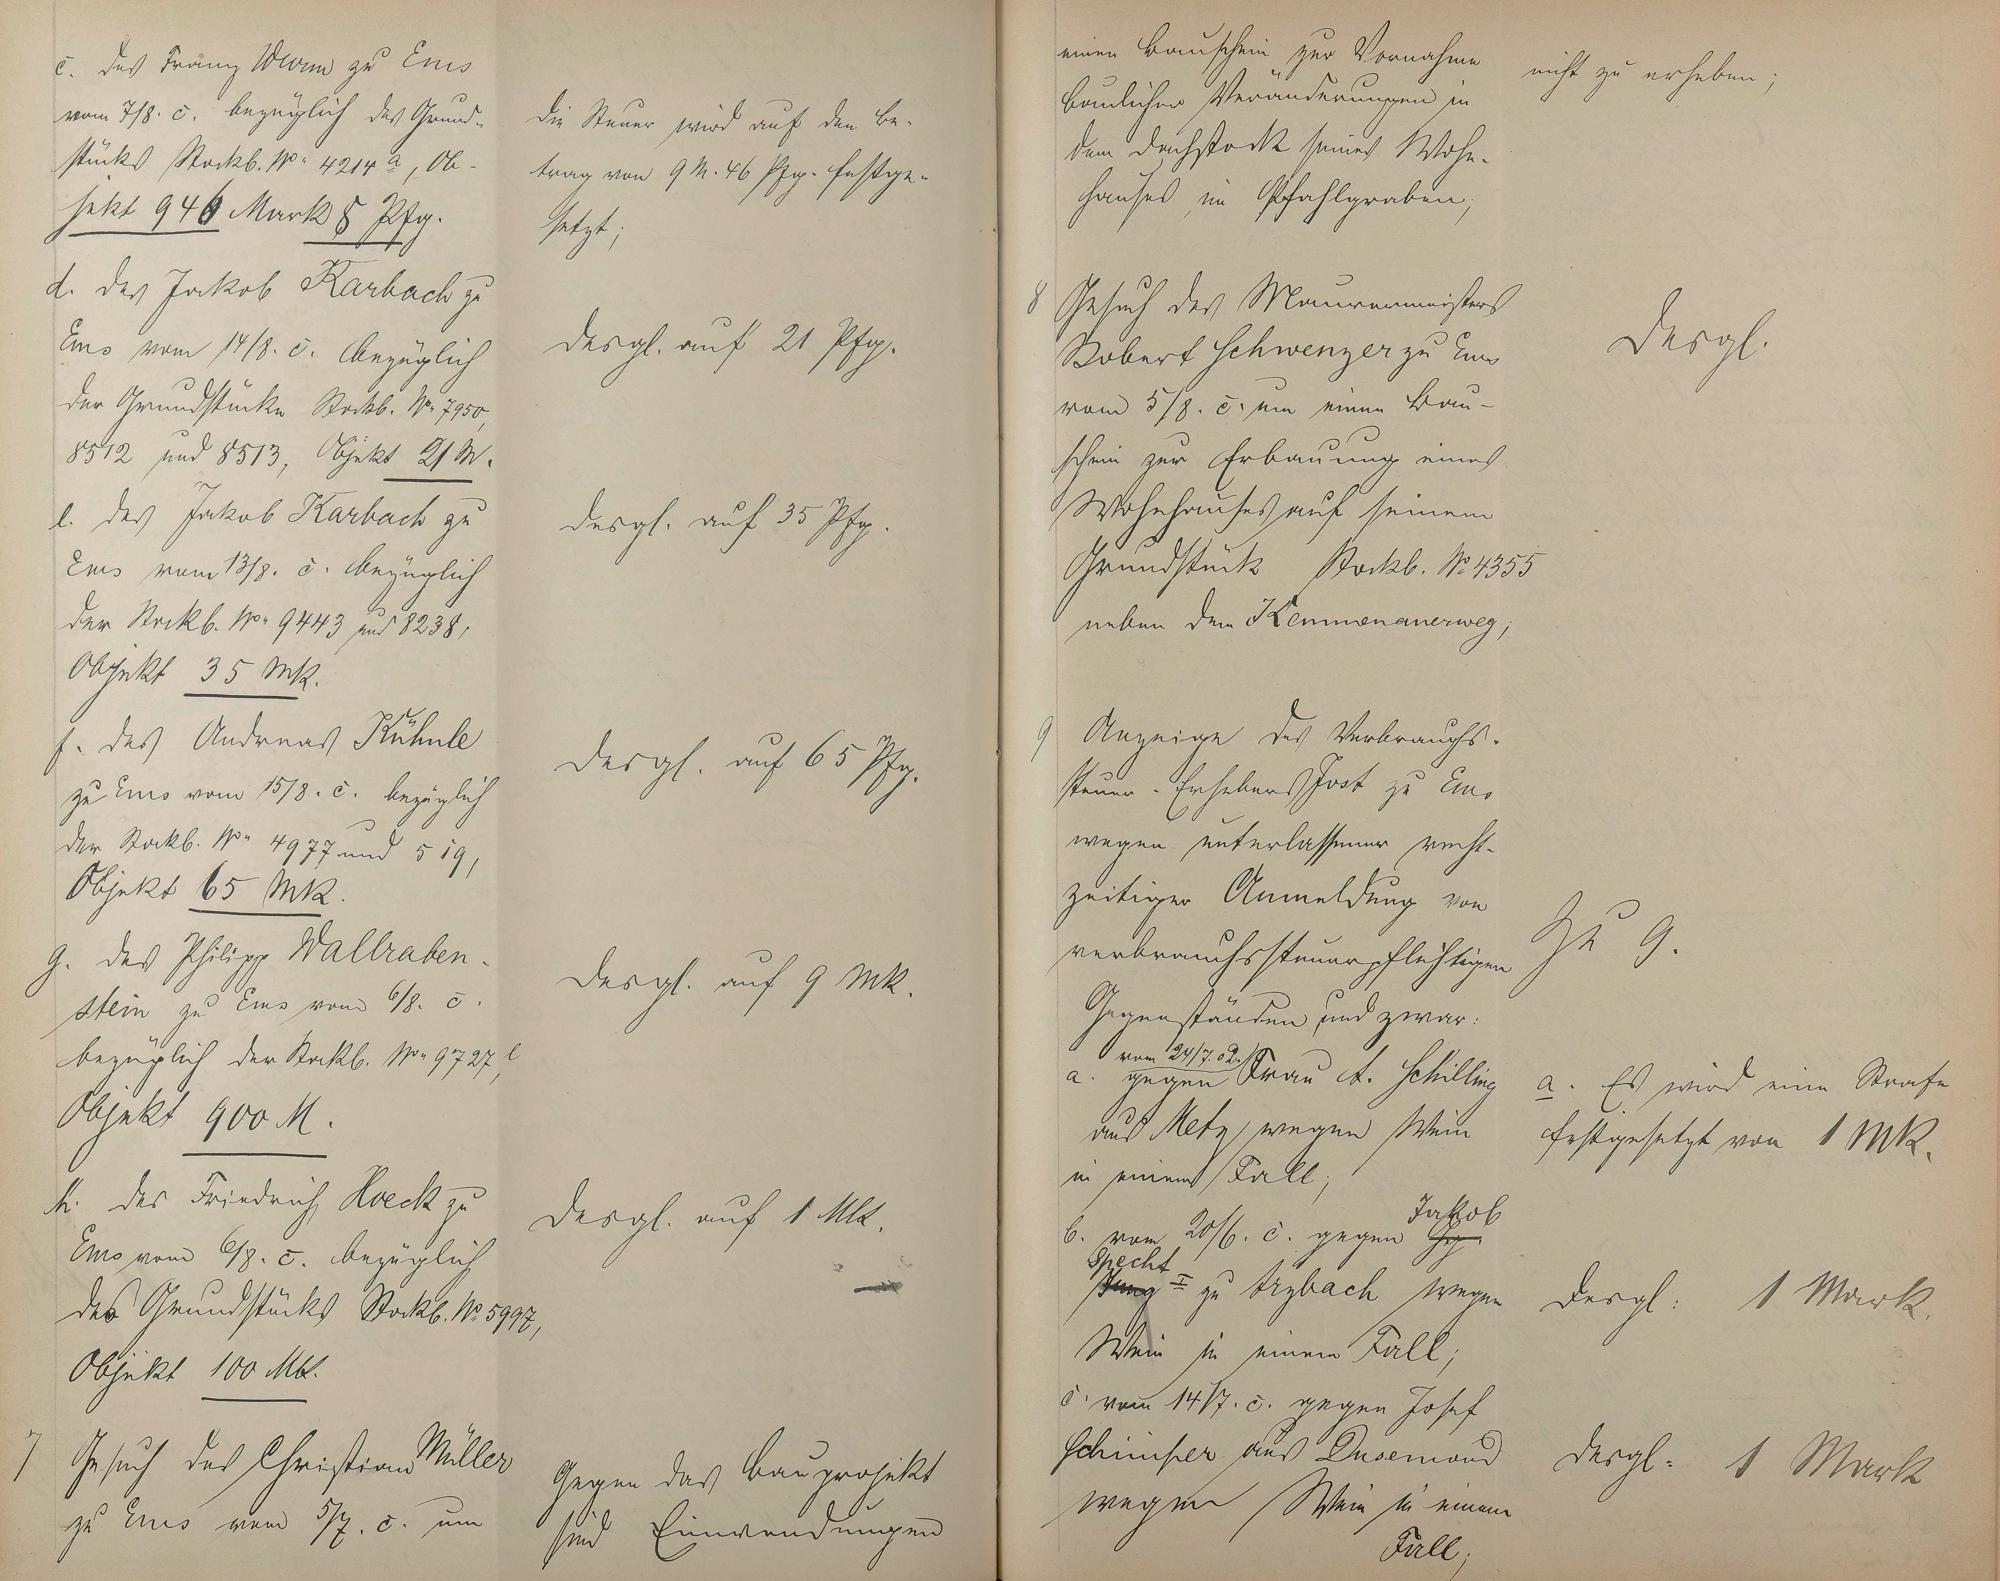 c. des Franz Wurm zu Ems
vom 7/8. c. bezüglich des Grund-
stücks Stockb. No. 4214 a, Ob-
jekt 946 Mark 8 Pfg.
Die Steuer wird auf den Be-
trag von 9 M. 46 Pfg. festge-
setzt;
d. des Jakob Karbach zu
Ems vom 14/8. c. bezüglich
der Grundstücke Stockb. No. 7950,
8512 und 8513, Objekt 21 M.
desgl. auf 21 Pfg.
e. des Jakob Karbach zu
Ems vom 13/8. c. bezüglich
der Stockb. No. 9443 und 8238,
Objekt 35 Mk.
desgl. auf 35 Pfg.
f. des Andreas Kühnle
zu Ems vom 15/8. c. bezüglich
der Stockb. No. 4977 und 519,
Objekt 65 Mk.
desgl. auf 65 Pfg.
g. des Philipp Wallraben-
stein zu Ems vom 6/8. c.
bezüglich der Stockb. No. 9727,
Objekt 900 M.
desgl. auf 9 Mk.
h. des Friedrich Hoeck zu
Ems vom 6/8. c. bezüglich
des Grundstücks Stockb. No. 5997,
Objekt 100 Mk.
desgl. auf 1 Mk.
7 Gesuch des Christian Müller
zu Ems vom 5/7. c. um
Gegen das Bauprojekt
sind Einwendungen
einen Bauschein zur Vornahme
baulicher Veränderungen in
dem Dachstock seines Wohn-
hauses im Pfahlgraben;
nicht zu erheben;
8 Gesuch des Maurermeisters
Robert Schwenzer zu Ems
vom 5/8. c. um einen Bau-
schein zur Erbauung eines
Wohnhauses auf seinem
Grundstück Stockb. No. 4355
neben dem Kemmenauerweg;
desgl.
9 Anzeige des Verbrauchs-
steuer-Erhebers Jost zu Ems
wegen unterlassener recht-
zeitiger Anmeldung von
verbrauchssteuerpflichtigen
Gegenständen und zwar:
Zu 9.
vom 24/7.02.
a. gegen Frau A. Schilling
aus Metz wegen Wein
in einem Fall;
a. Es wird eine Strafe
festgesetzt von 1 Mk.
Jakob
b. vom 20/6. c. gegen
Specht
I zu Arzbach wegen
Wein in einem Fall;
desgl. 1 Mark.
c. vom 14/7. c. gegen Josef
Schimper aus Dusemond
wegen Wein in einem
Fall;
desgl. 1 Mark